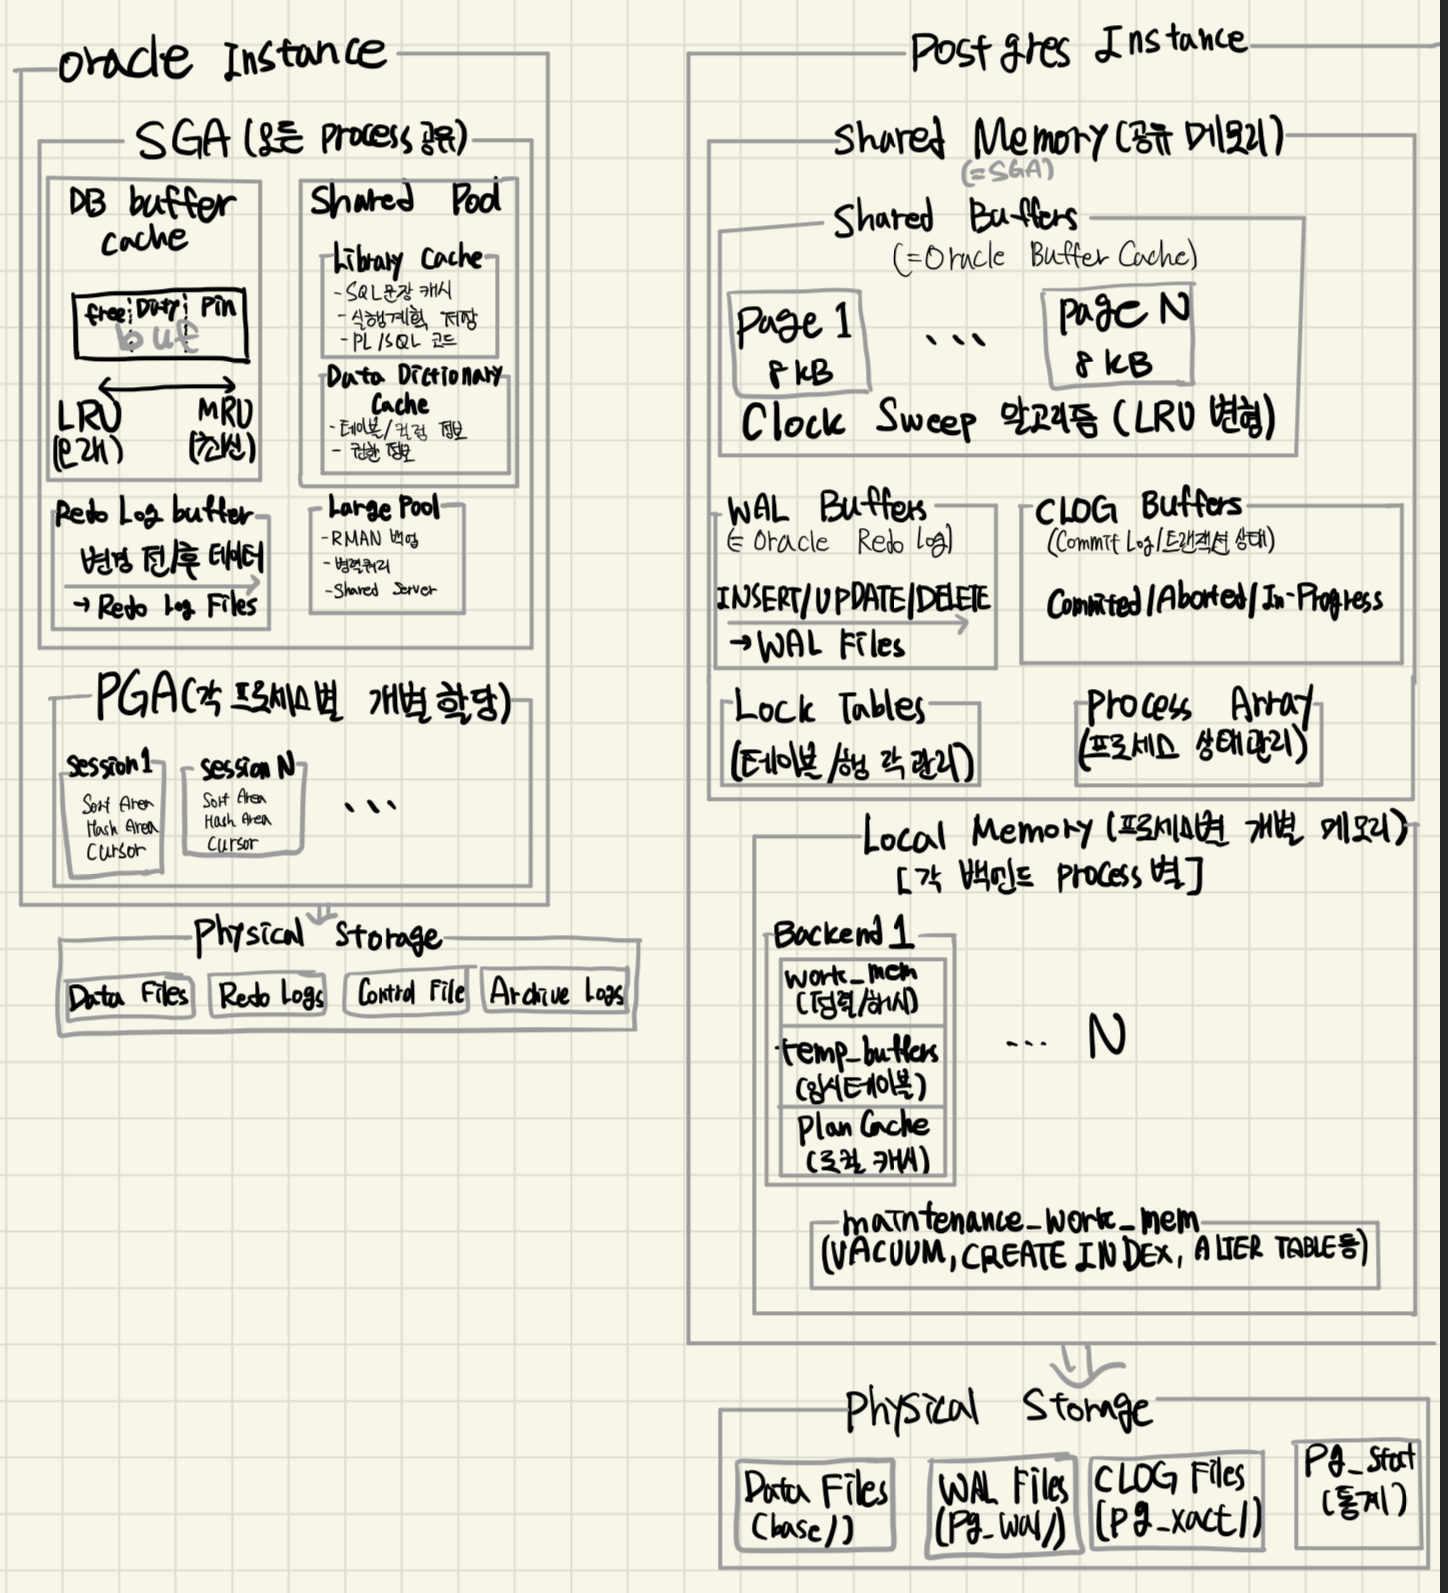 oracle Instance
SGA (모든 process 공유)
DB buffer
cache
free Dirty Pin
buf
LRU
(오래)
MRU
(최신)
Shared Pool
Library Cache
- SQL문장 캐시
- 실행계획 저장
- PL/SQL 코드
Data Dictionary
Cache
- 테이블/컬럼 정보
- 권한 정보
Redo Log buffer
변경 전/후 데이터
→ Redo Log Files
Large Pool
- RMAN 백업
- 병렬쿼리
- Shared Server
PGA (각 프로세스별 개별 할당)
Session 1
Sort Area
Hash Area
Cursor
session N
Sort Area
Hash Area
Cursor
...
Physical Storage
Data Files
Redo Logs
Control File
Archive Logs
Postgres Instance
Shared Memory (공유 메모리)
(=SGA)
Shared Buffers
(=Oracle Buffer Cache)
Page 1
8 kB
...
page N
8 kB
Clock Sweep 알고리즘 (LRU 변형)
WAL Buffers
(= Oracle Redo Log)
INSERT/UPDATE/DELETE
→ WAL Files
CLOG Buffers
(Commit Log/트랜잭션 상태)
Commited/Aborted/In-Progress
Lock Tables
(테이블/행 락 관리)
Process Array
(프로세스 상태관리)
Local Memory (프로세스별 개별 메모리)
[각 백엔드 process 별]
Backend 1
work_mem
(정렬/해시)
temp_buffers
(임시테이블)
Plan Cache
(로컬 캐시)
... N
maintenance_work_mem
(VACUUM, CREATE INDEX, ALTER TABLE 등)
Physical Storage
Data Files
(base/)
WAL Files
(Pg_wal/)
CLOG Files
(pg_xact/)
Pg_stat
(통계)